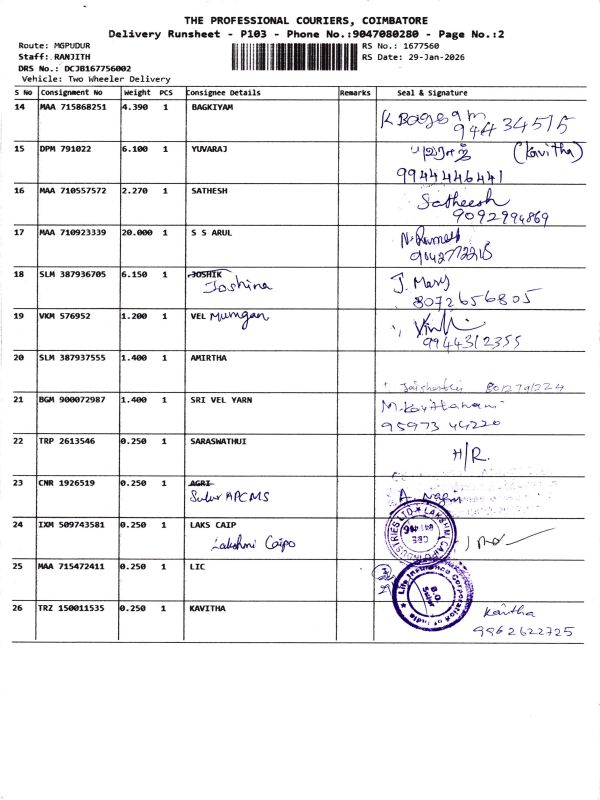 THE PROFESSIONAL COURIERS, COIMBATORE
Delivery Runsheet - P103 - Phone No.:9047080280 - Page No.:2
Route: MGPUDUR
RS No.: 1677560
Staff: RANJITH
RS Date: 29-Jan-2026
DRS No.: DCJB167756002
Vehicle: Two Wheeler Delivery
S No Consignment No Weight PCS Consignee Details Remarks Seal & Signature
14 MAA 715868251 4.390 1 BAGKIYAM
15 DPM 791022 6.100 1 YUVARAJ (Kavitha)
9944446441
16 MAA 710557572 2.270 1 SATHESH Satheesh
9092994869
17 MAA 710923339 20.000 1 S S ARUL
18 SLM 387936705 6.150 1 JOSHIK J. Mary
Joshina 8072656805
19 VKM 576952 1.200 1 VEL Murugan
9944312355
20 SLM 387937555 1.400 1 AMIRTHA
21 BGM 900072987 1.400 1 SRI VEL YARN
95973 44220
22 TRP 2613546 0.250 1 SARASWATHUI H/R.
23 CNR 1926519 0.250 1 AGRI
Sulur APCMS
24 IXM 509743581 0.250 1 LAKS CAIP
Lakshmi Caipo
25 MAA 715472411 0.250 1 LIC
Life Insurance Corporation of India
B.O.
Sulur
26 TRZ 150011535 0.250 1 KAVITHA Kavitha
9962622725